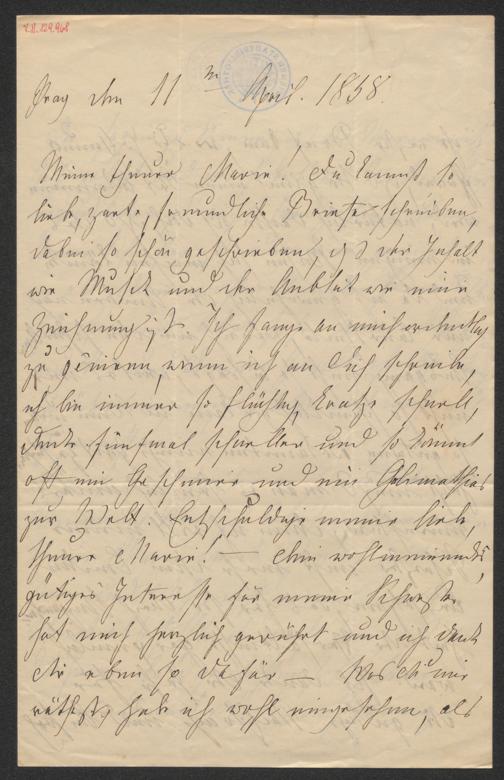 Prag den 11ten April. 1858.
Meine theure Marie! Du kannst so
liebe, zarte, freundliche Briefe schreiben,
dabei so schön geschrieben, daß der Inhalt
wie Musik und der Anblick wie eine
Zeichnung ist. Ich fange an mich ordentlich
zu geniren, wenn ich an Dich schreibe,
ich bin immer so flüchtig, kratze schnell,
denke fünfmal schneller und so kömmt
oft ein Geschmier und ein Galimathias
zur Welt. Entschuldige meine liebe,
theure Marie! — Dein wohlmeinendes,
gütiges Interesse für meine Schwester
hat mich herzlich gerührt und ich danke
Dir eben so dafür — Was Du mir
räthst, hab ich wohl eingesehen, als